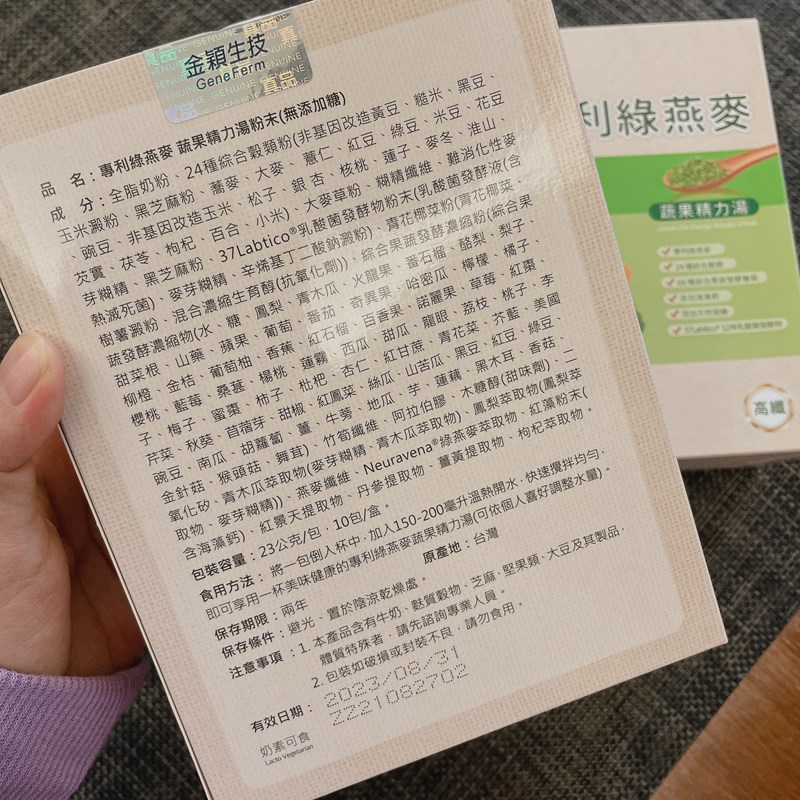 金穎生技
GeneFerm
GENUINE
真品
品　名：專利綠燕麥 蔬果精力湯粉末(無添加糖)
成　分：全脂奶粉、24種綜合穀類粉(非基因改造黃豆、糙米、黑豆、
玉米澱粉、黑芝麻粉、蕎麥、大麥、薏仁、紅豆、綠豆、米豆、花豆
豌豆、非基因改造玉米、松子、銀杏、核桃、蓮子、麥冬、淮山、
芡實、茯苓、枸杞、百合、小米)、大麥草粉、糊精纖維、難消化性麥
芽糊精、黑芝麻粉、37Labtico®乳酸菌發酵物粉末(乳酸菌發酵液(含
熱滅死菌)、麥芽糊精、辛烯基丁二酸鈉澱粉)、青花椰菜粉(青花椰菜、
樹薯澱粉、混合濃縮生育醇(抗氧化劑))、綜合果蔬發酵濃縮粉(綜合果
蔬發酵濃縮物(水、糖、鳳梨、青木瓜、火龍果、番石榴、酪梨、梨子、
甜菜根、山藥、蘋果、葡萄、番茄、奇異果、哈密瓜、檸檬、橘子、
柳橙、金桔、葡萄柚、香蕉、紅石榴、百香果、諾麗果、草莓、紅棗、
櫻桃、藍莓、桑葚、楊桃、蓮霧、西瓜、甜瓜、龍眼、荔枝、桃子、李
子、梅子、蜜棗、柿子、枇杷、杏仁、紅甘蔗、青花菜、芥藍、美國
芹菜、秋葵、苜蓿芽、甜椒、紅鳳菜、絲瓜、山苦瓜、黑豆、紅豆、綠豆、
豌豆、南瓜、胡蘿蔔、薑、牛蒡、地瓜、芋、蓮藕、黑木耳、香菇、
金針菇、猴頭菇、舞茸)、竹筍纖維、阿拉伯膠、木糖醇(甜味劑)、二
氧化矽、青木瓜萃取物(麥芽糊精、青木瓜萃取物)、鳳梨萃取物(鳳梨萃
取物、麥芽糊精))、燕麥纖維、Neuravena®綠燕麥萃取物、紅藻粉末(
含海藻鈣)、紅景天提取物、丹參提取物、薑黃提取物、枸杞萃取物。
包裝容量：23公克/包，10包/盒。
食用方法：將一包倒入杯中，加入150-200毫升溫熱開水，快速攪拌均勻，
即可享用一杯美味健康的專利綠燕麥蔬果精力湯(可依個人喜好調整水量)。
保存期限：兩年　原產地：台灣
保存條件：避光、置於陰涼乾燥處。
注意事項：1. 本產品含有牛奶、麩質穀物、芝麻、堅果類、大豆及其製品，
體質特殊者，請先諮詢專業人員。
2. 包裝如破損或封裝不良，請勿食用。
有效日期：2023/08/31
ZZ21082702
奶素可食
Lacto Vegetarian
利綠燕麥
蔬果精力湯
高纖